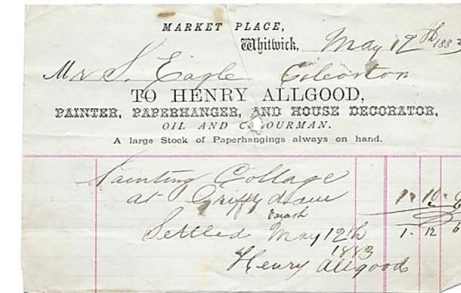 MARKET PLACE,
Whitwick, May 12th 1883
Mr S. Eagle Coleorton
TO HENRY ALLGOOD,
PAINTER, PAPERHANGER, AND HOUSE DECORATOR,
OIL AND COLOURMAN.
A large Stock of Paperhangings always on hand.
Painting Cottage
at Griffydam
Settled May 12th 1. 12 6
1883
Henry Allgood